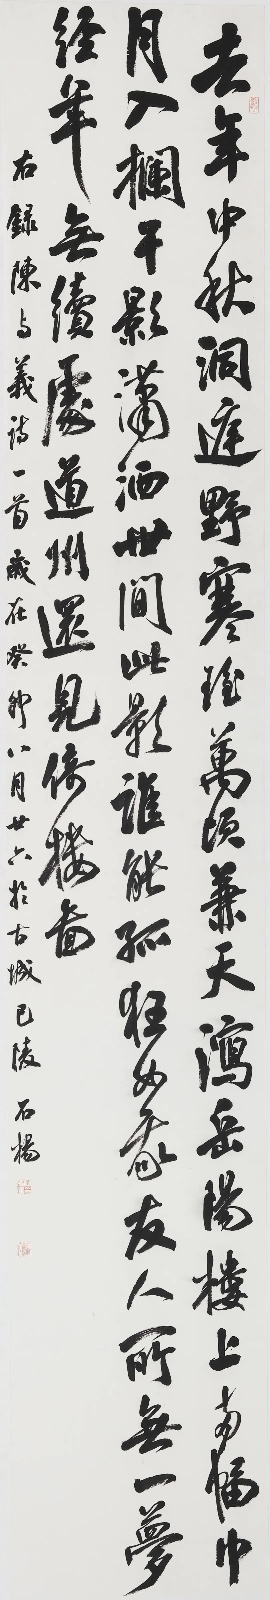 去年中秋洞庭野寒瑤萬頃兼天瀉岳陽樓上兩幅巾
月入欄干影瀟洒世間此影誰能孤狂如我友人所無一夢
經年無續處道州還見倚樓啚
右錄陳与義詩一首歲在癸卯八月廿六於古城巴陵 石楊